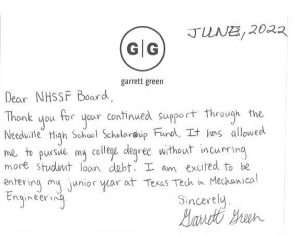 JUNE, 2022
G|G
garrett green
Dear NHSSF Board,
Thank you for your continued support through the
Needville High School Scholarship Fund. It has allowed
me to pursue my college degree without incurring
more student loan debt. I am excited to be
entering my junior year at Texas Tech in Mechanical
Engineering.
Sincerely,
Garrett Green